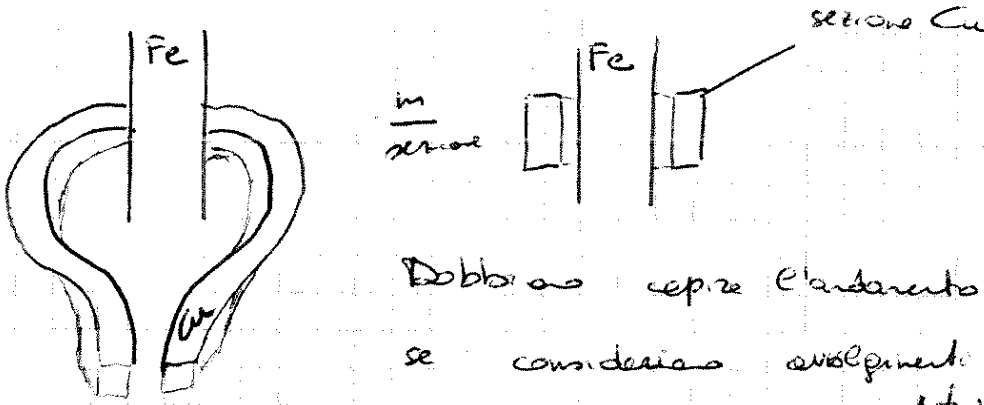 sezione Cu
Fe
Fe
in
sezione
Cu
Dobbiamo capire l'andamento
se consideriamo avvolgimenti